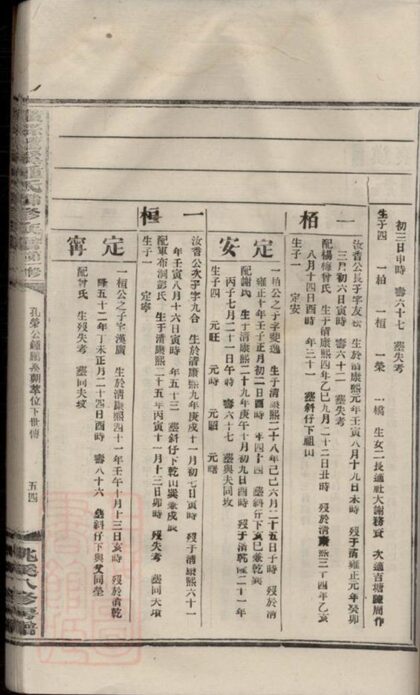 初三日申時　壽六十七　塟失考
生子四　一柏　一桓　一榮　一橋　生女二長適社大謝務賓　次適百塘陳周作
一柏
汝香公長子字友松　生於清康熙元年壬寅八月十九日未時　歿于清雍正元年癸卯
三月初六日寅時　壽六十二　塟失考
配楊梅曾氏　生于清康熙四年乙巳九月二十二日丑時　歿於清康熙三十四年乙亥
八月十四日酉時　年三十一　塟斜仔下祖山
生子一　定安
定安
一柏公之子字斐逸　生于清康熙二十八年己巳六月二十五日子時　歿于清
雍正十年壬子正月初二日酉時　年四十四　塟斜仔下亥巳兼乾巽
配謝氏　生于清康熙二十九年庚午十月初九日酉時　歿于清乾隆二十一年
丙子七月二十一日午時　壽六十七　塟與夫同坟
生子四　元旺　元時　元顯　元曙
一桓
汝香公次子字九合　生於清康熙九年庚戌十一月初七日寅時　歿于清康熙六十一
年壬寅八月十六日寅時　年五十三　塟斜仔下乾山巽兼戌辰
配軍布洞彭氏　生于清康熙二十五年丙寅十一月十三日卯時　歿失考　塟同夫坟
生子一　定寗
定寗
一桓公之子字漢廣　生於清康熙四十一年壬午十月十三日亥時　歿於清乾
隆五十二年丁未正月二十四日酉時　壽八十六　塟斜仔下與父同塋
配曾氏　生歿失考　塟同夫坟
孔榮公鍾鵬公朝萃位下世情
五四
八修房譜